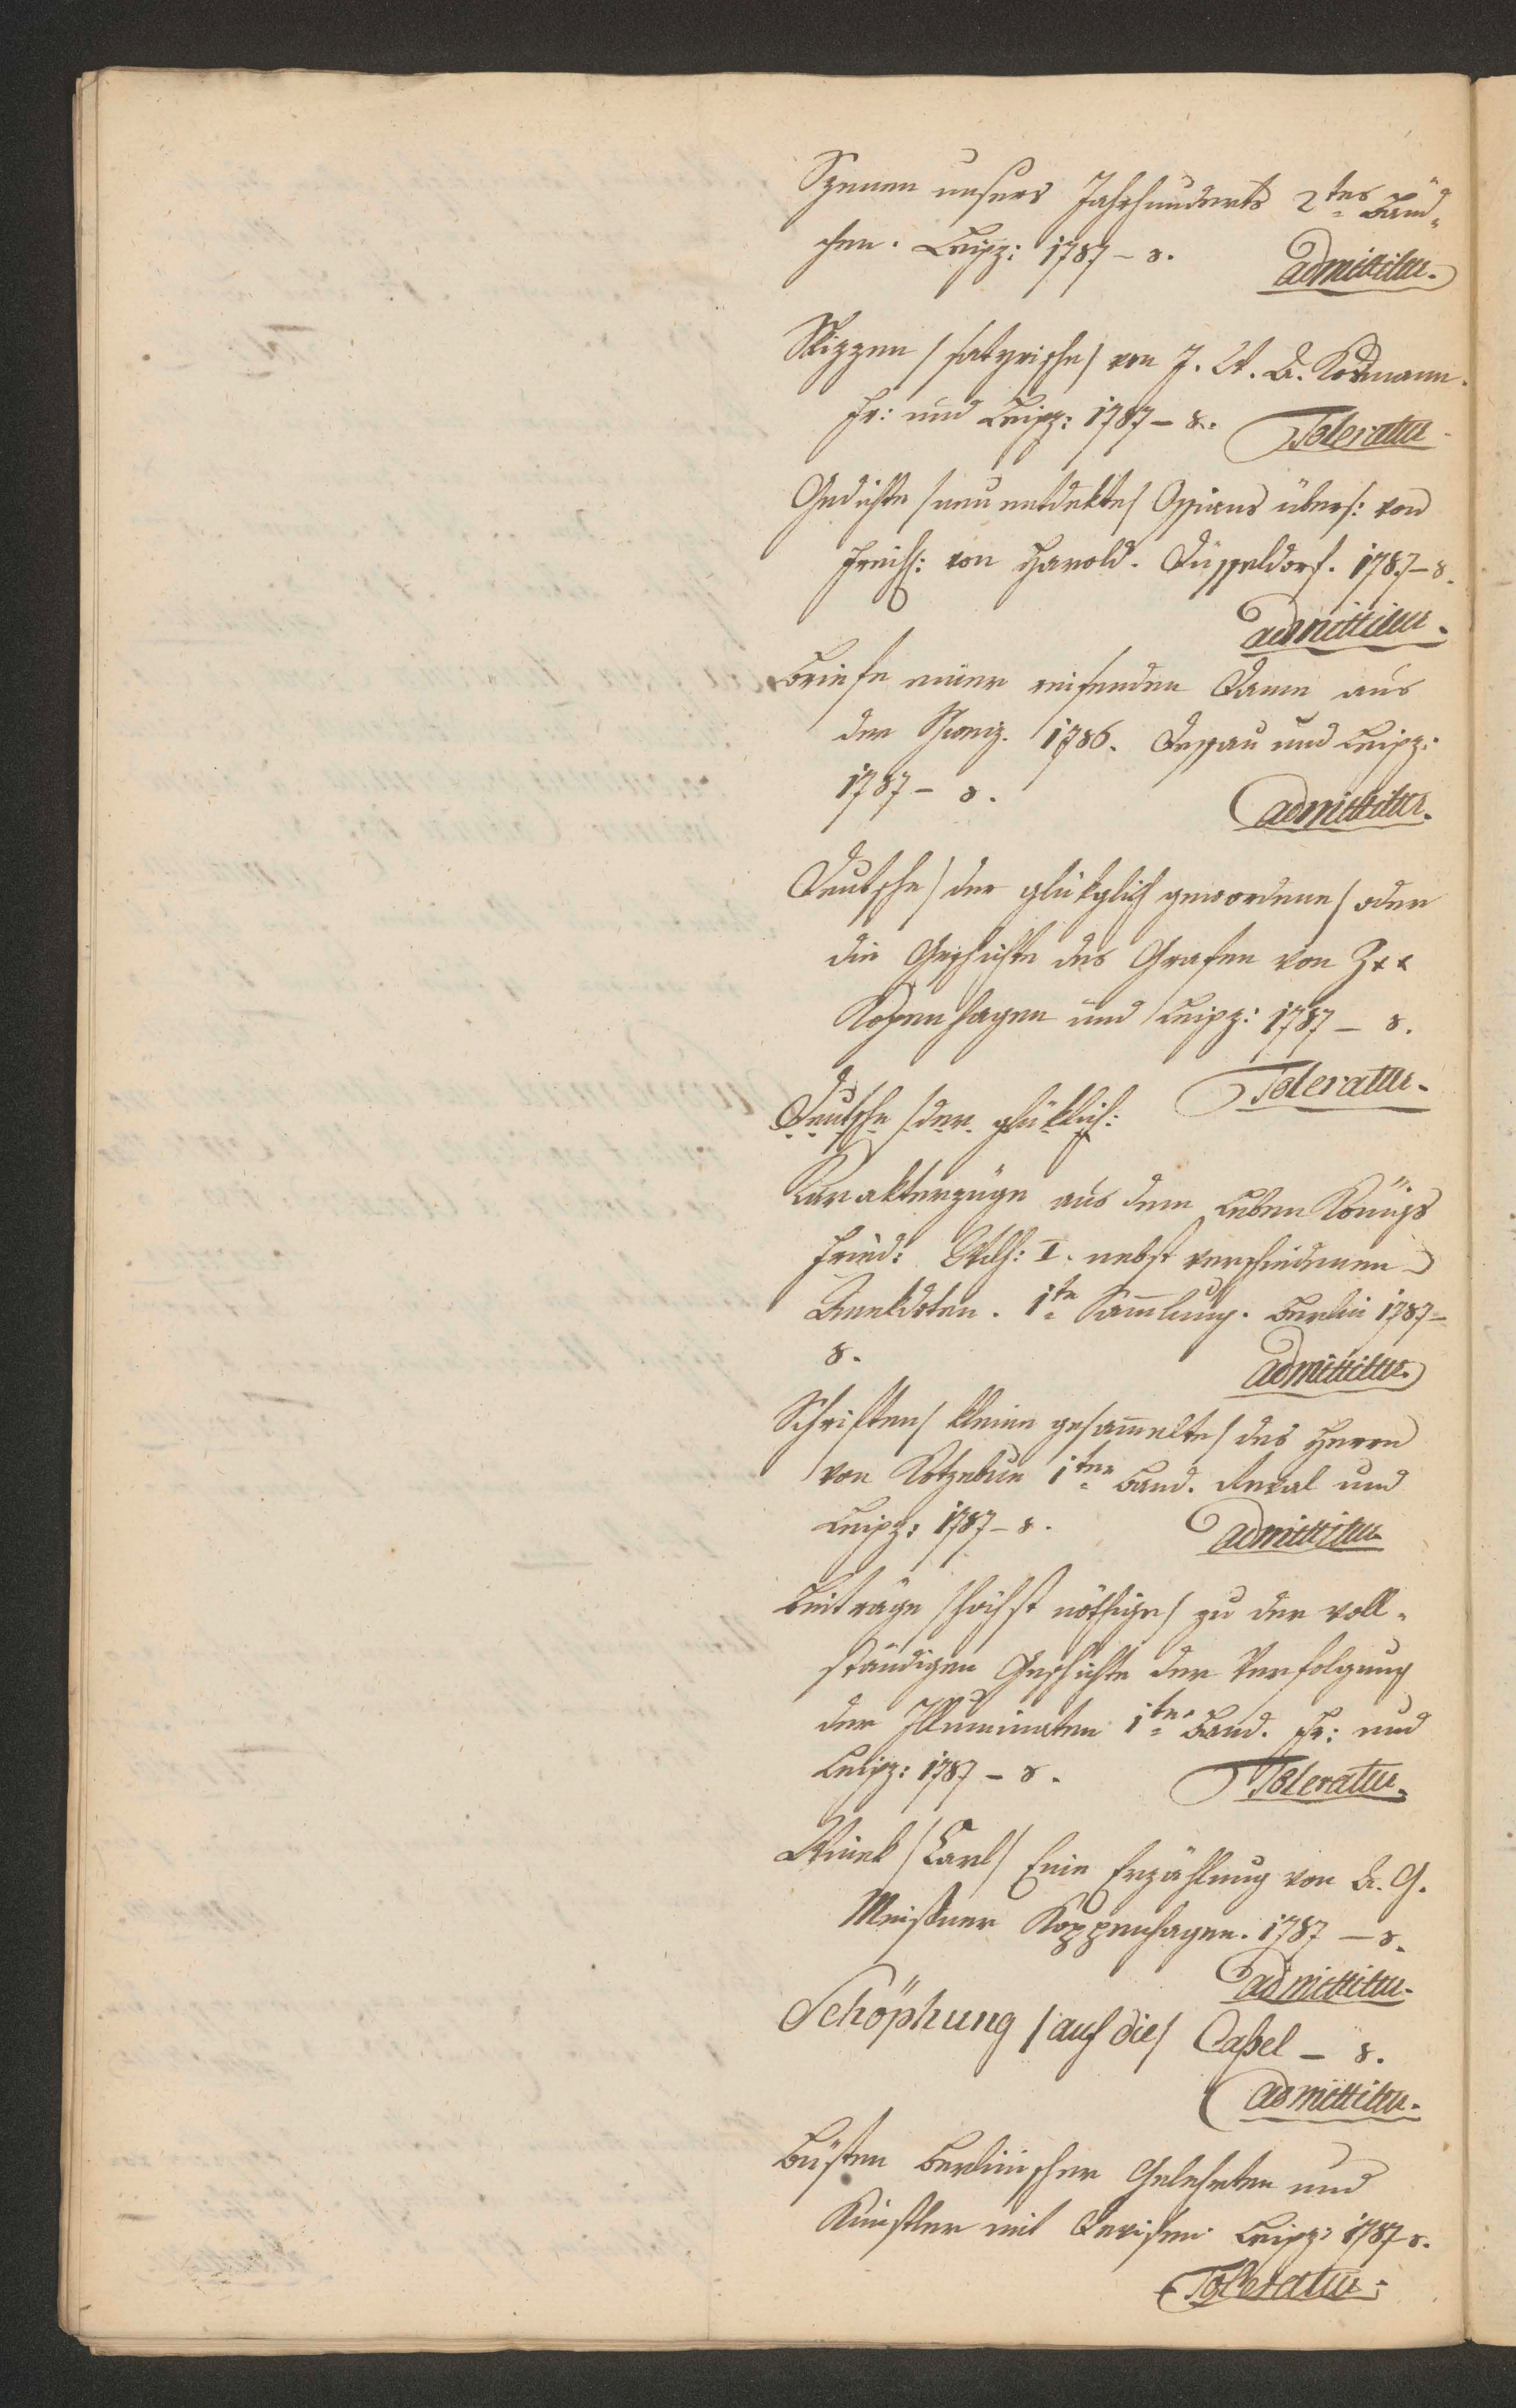 Szenen unsers Jahrhunderts 2tes Bänd„
chen. Leipz: 1787 – 8.
admittitur.
Skizzen /satyrische/ von J. A. Kosmann.
Fr: und Leipz: 1787 – 8.
Toleratur
Gedichte /neu entdekte/ Ossians übers: von
Freih: von Harold. Düsseldorf. 1787 – 8.
admittitur.
Briefe einer reisenden Dame aus
der Schweiz. 1786. Dessau und Leipz:
1787 – 8.
admittitur.
Deutsche /der glüklich gewordene/ oder
die Geschichte des Grafen von Z**
Kopenhagen und Leipz: 1787 – 8.
Toleratur.
Deutsche /der glüklich:
Karakterzüge aus dem Leben Königs
Fried: Wilh: I. nebst verschiedenen
Anekdoten. 1te Sammlung. Berlin 1787 –
8.
admittitur.
Schriften /kleine gesammelte/ des Herrn
von Kotzebue 1ter Band. Reval und
Leipz: 1787 – 8.
admittitur
Beiträge /höchst nöthige/ zu der voll„
ständigen Geschichte der Verfolgung
der Illuminaten 1ter Band. Fr: und
Leipz: 1787 – 8.
Toleratur.
/Carl/ Eine Erzählung von A. G.
Meißner Koppenhagen. 1787 – 8.
admittitur.
Schöphung /auf die/ Caßel – 8.
admittitur.
Büsten Berlinischer Gelehrten und
Künstler mit Devisen. Leipz: 1787 8.
Toleratur.